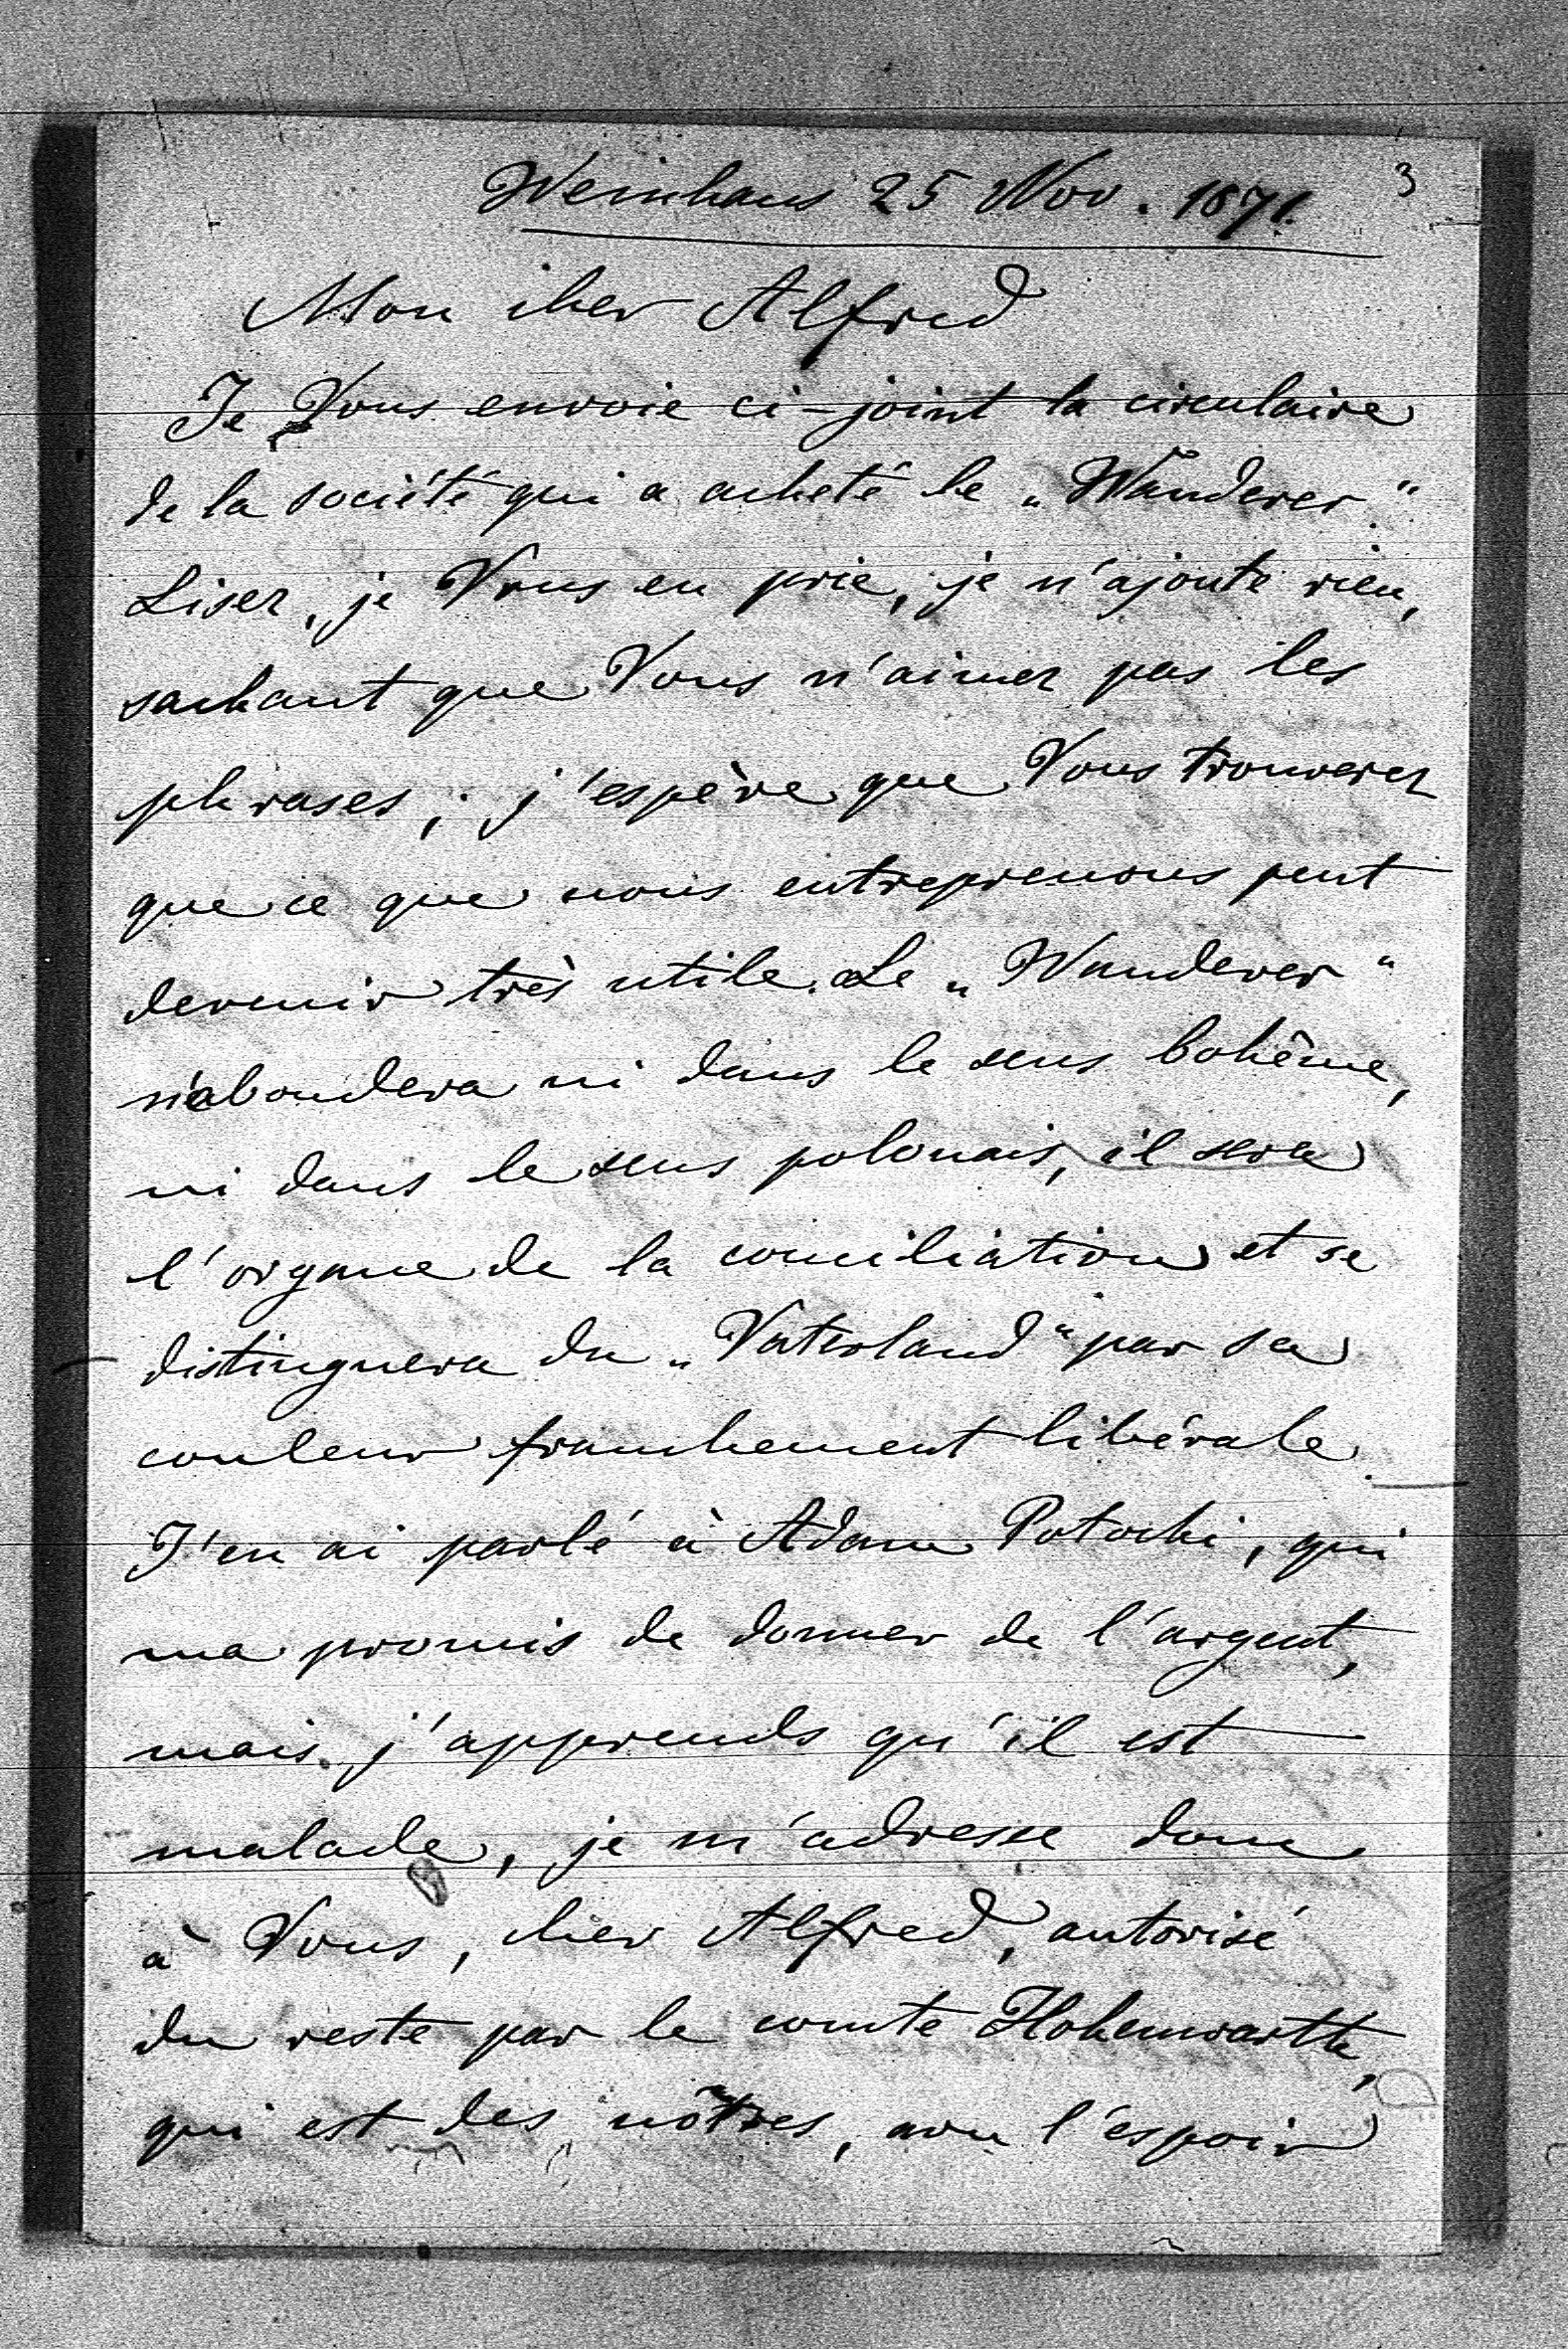 Weinhaus 25 Nov. 1871.
3
Mon cher Alfred
Je Vous envoie ci-joint la circulaire
de la société qui a acheté le „Wanderer."
Lisez, je Vous en prie, je n'ajoute rien,
sachant que Vous n'aimez pas les
phrases; j'espère que Vous trouverez
que ce que nous entreprenons peut
devenir très utile. Le „Wanderer"
n'abondera ni dans le sens bohême,
ni dans le sens polonais, il sera
l'organe de la conciliation et se
distinguera du „Vaterland" par sa
couleur franchement libérale.
J'en ai parlé à Adam Potocki, qui
ma promis de donner de l'argent,
mais j'apprends qu'il est
malade, je m'adresse donc
à Vous, cher Alfred, autorisé
du reste par le comte Hohenwarth,
qui est des nôtres, l'espoir